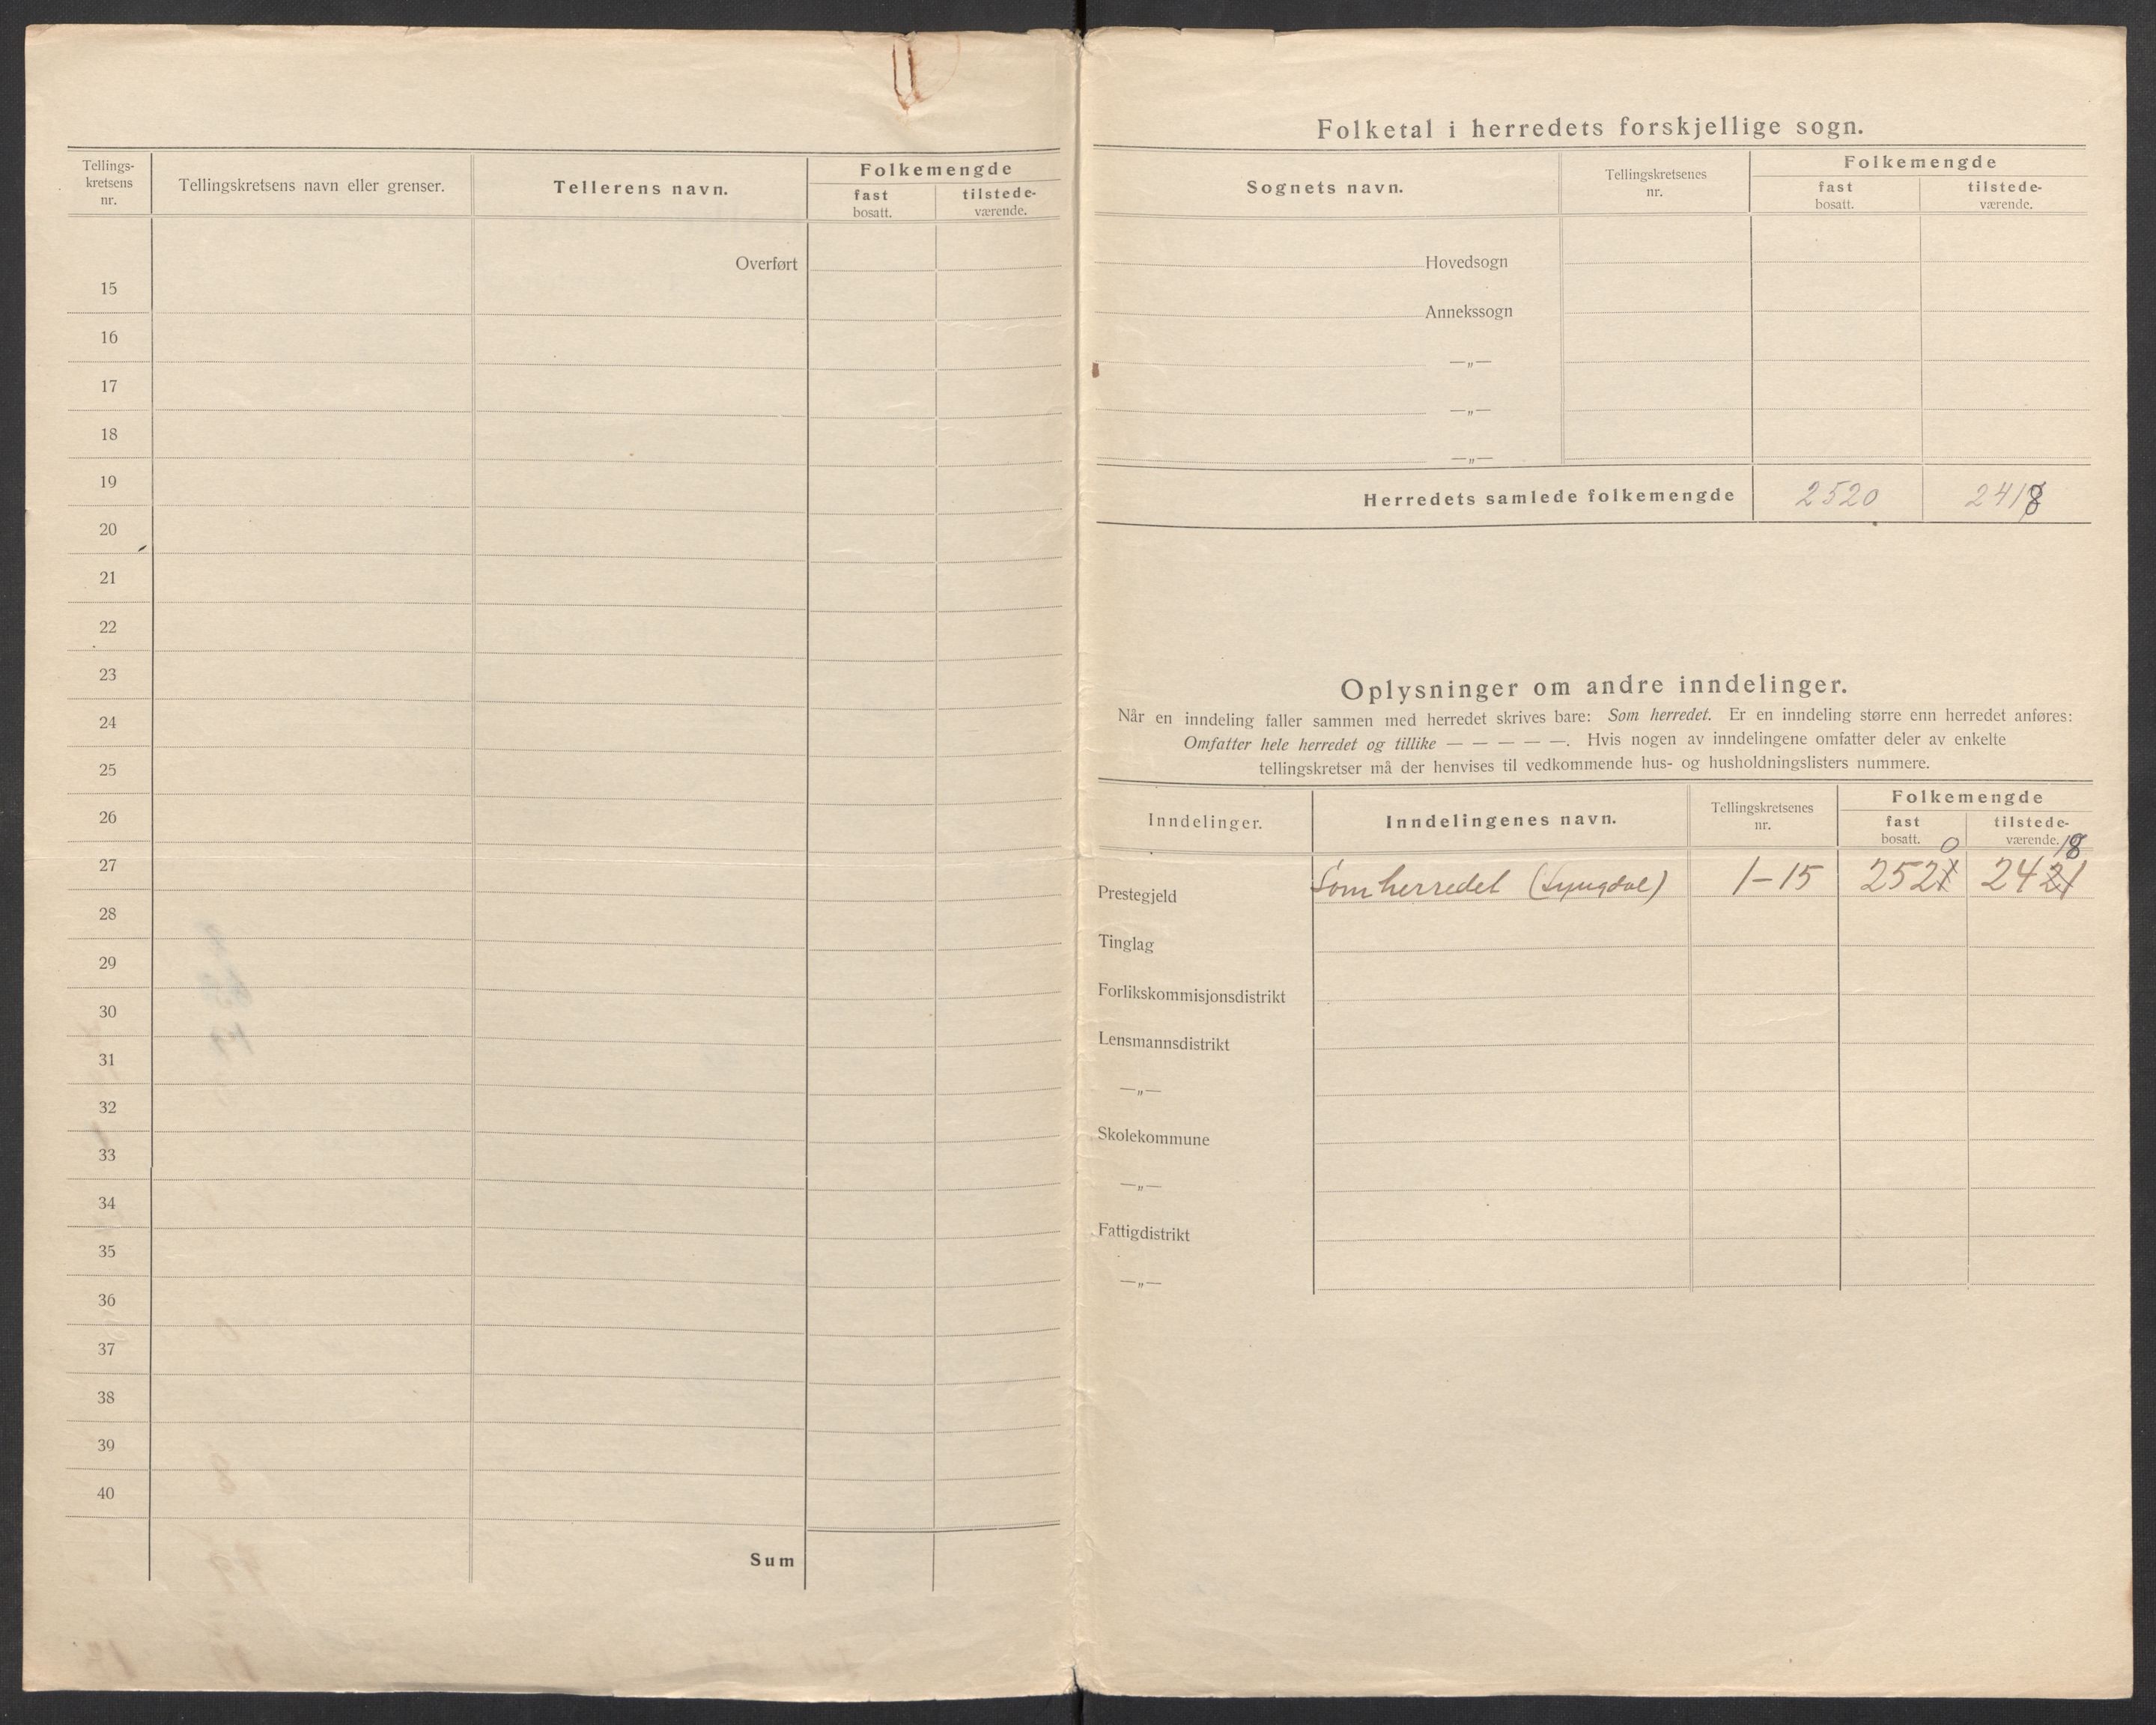 Tellings-
kretsens
nr.
Tellingskretsens navn eller grenser.
Tellerens navn.
Folkemengde
fast
bosatt.
tilstede-
værende.
Overført
15
16
17
18
19
20
21
22
23
24
25
26
27
28
29
30
31
32
33
34
35
36
37
38
39
40
Sum
Folketal i herredets forskjellige sogn.
Sognets navn.
Tellingskretsenes
nr.
Folkemengde
fast
bosatt.
tilstede-
værende.
Hovedsogn
Annekssogn
—„—
—„—
—„—
Herredets samlede folkemengde 2520 2418
Oplysninger om andre inndelinger.
Når en inndeling faller sammen med herredet skrives bare: Som herredet. Er en inndeling større enn herredet anføres:
Omfatter hele herredet og tillike — — — — —. Hvis nogen av inndelingene omfatter deler av enkelte
tellingskretser må der henvises til vedkommende hus- og husholdningslisters nummere.
Inndelinger.
Inndelingenes navn.
Tellingskretsenes
nr.
Folkemengde
fast
bosatt.
tilstede-
værende.
0 18
Prestegjeld Som herredet (Lyngdal) 1-15 2521 2421
Tinglag
Forlikskommisjonsdistrikt
Lensmannsdistrikt
—„—
Skolekommune
—„—
Fattigdistrikt
—„—